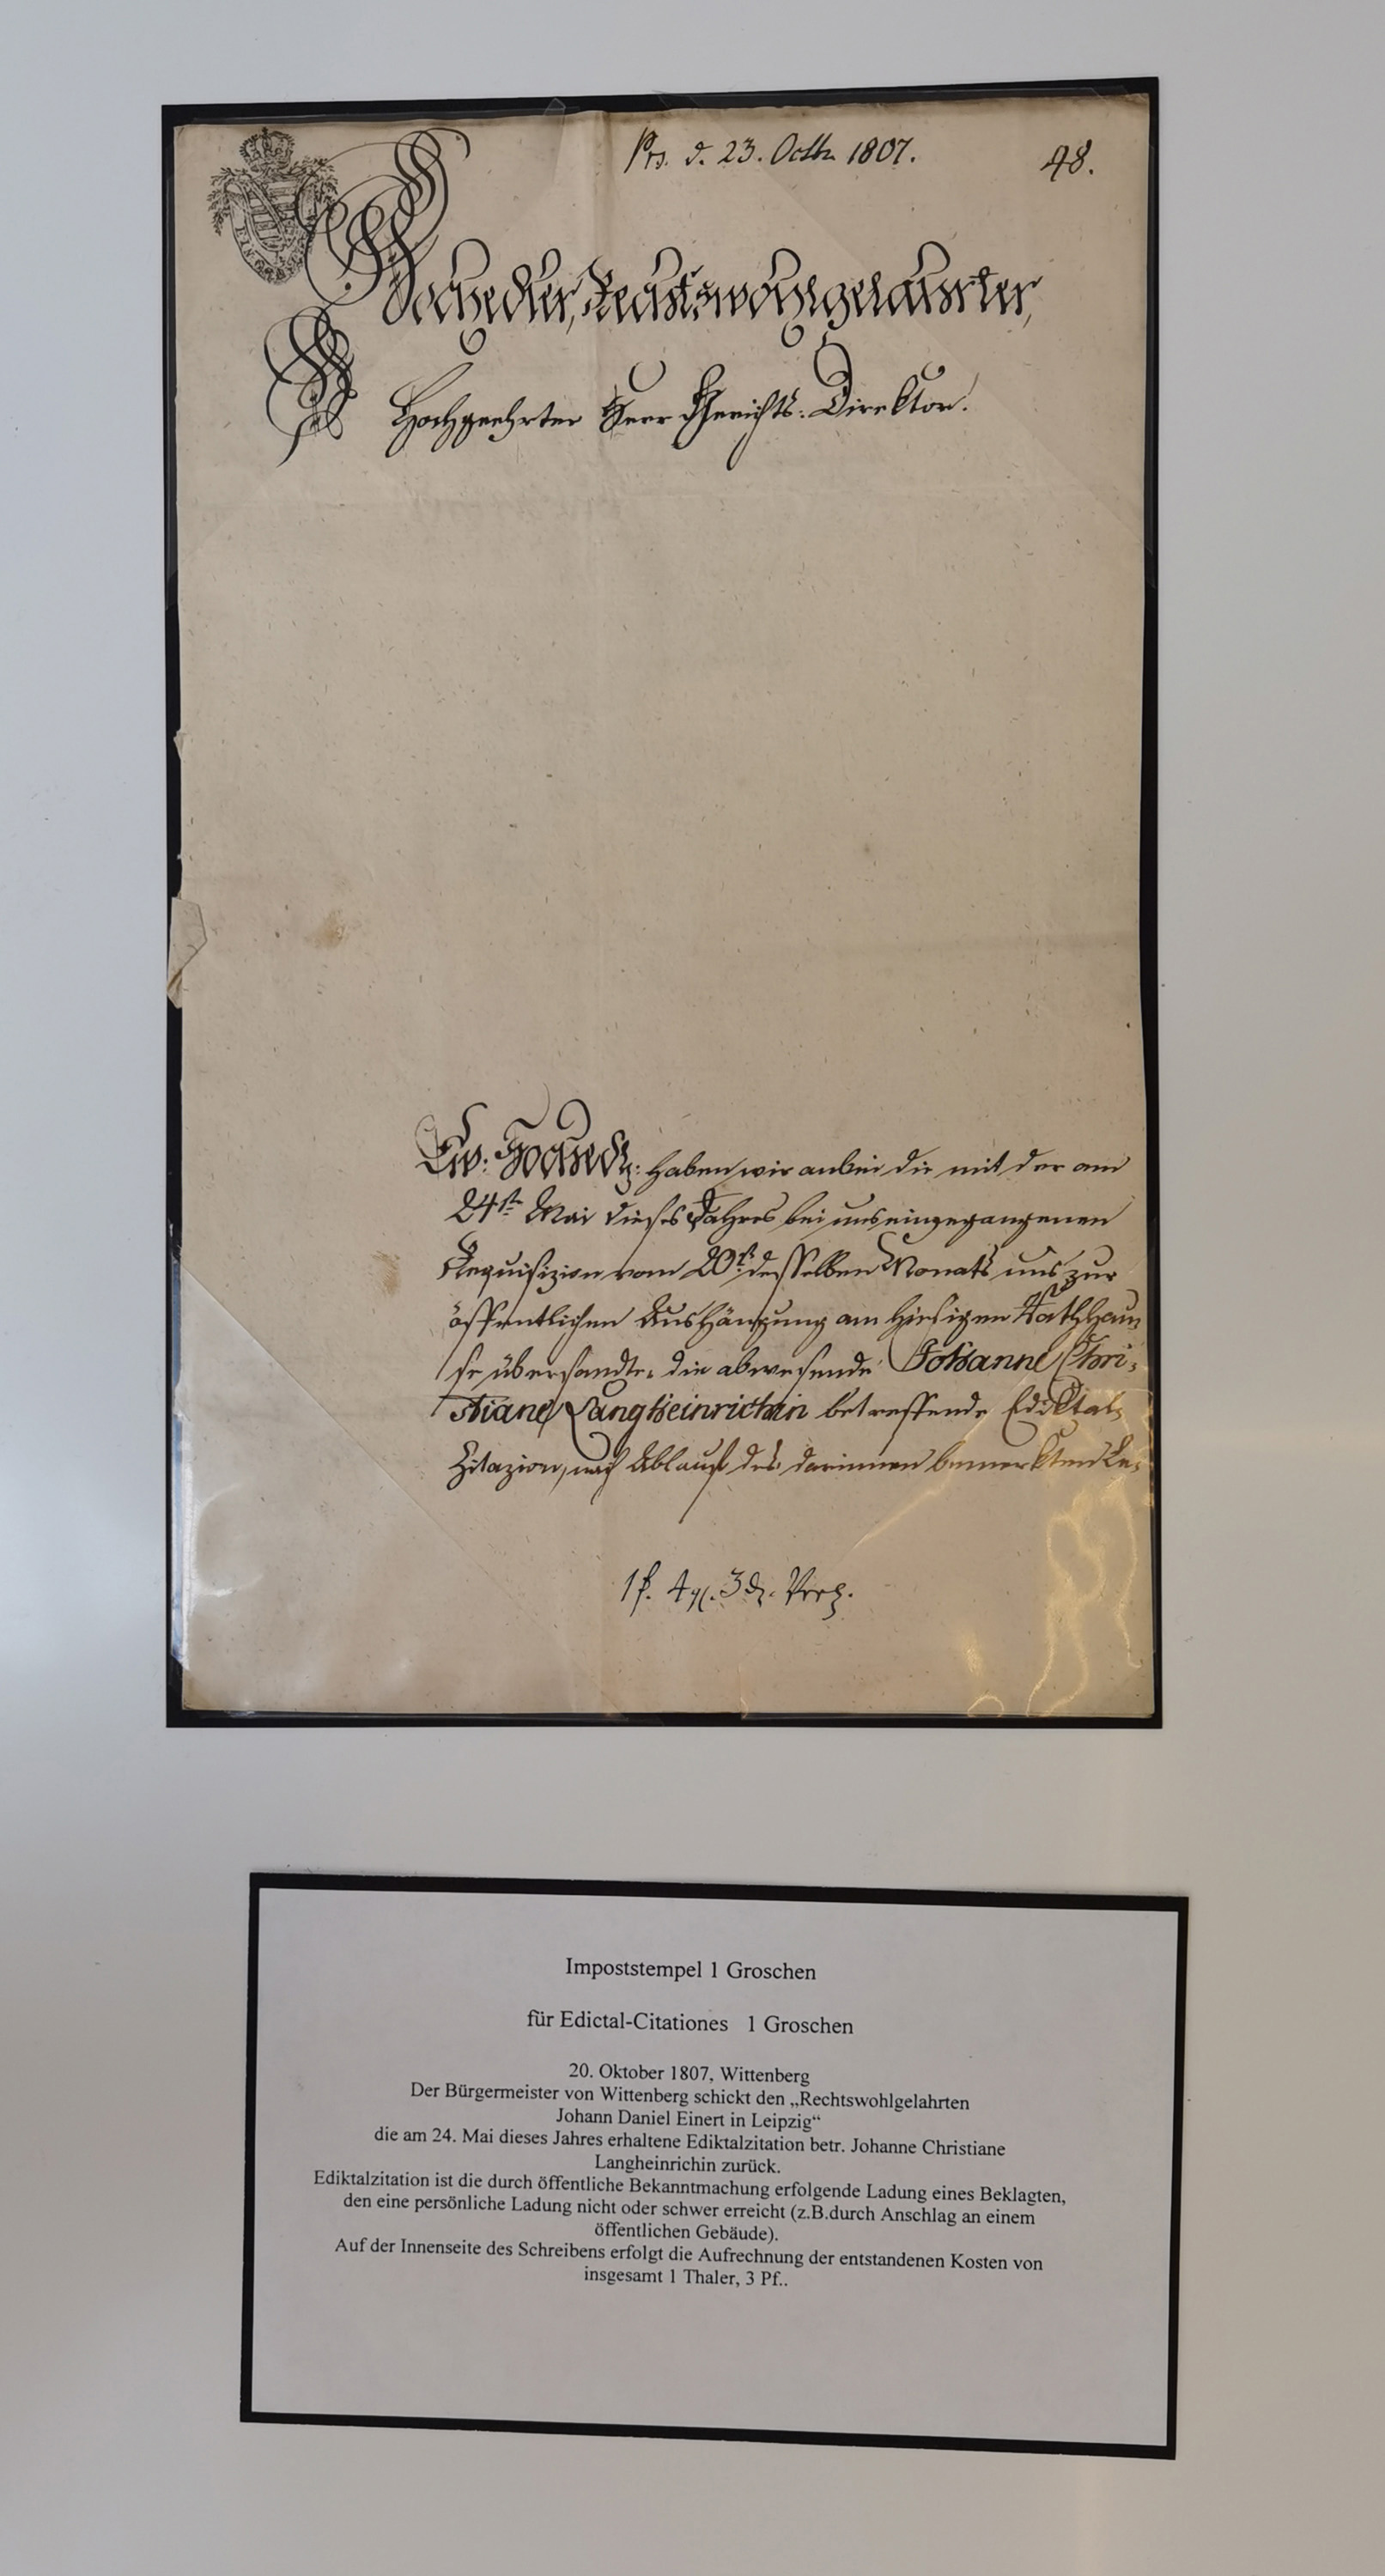 Prs. d. 23. Octbr. 1807.
48.
EIN GR
Hochedler, Rechtswohlgelahrter,
Hochgeehrter Herr Gerichts-Direktor.
Ew: Hochedl: haben wir anbei die mit der am
24st. Mai dieses Jahres bei uns eingegangenen
Requisizion vom 20st. desselben Monats uns zur
öffentlichen Aushängung am hiesigen Rathhau
se übersandte, die abwesende Johanne Chri-
stiane Langheinrichin betreffende Ediktal-
Zitazion, nach Ablauf des darinnen bemerkten Ter-
4 gl. 3 d.
Impoststempel 1 Groschen
für Edictal-Citationes 1 Groschen
20. Oktober 1807, Wittenberg
Der Bürgermeister von Wittenberg schickt den „Rechtswohlgelahrten
Johann Daniel Einert in Leipzig“
die am 24. Mai dieses Jahres erhaltene Ediktalzitation betr. Johanne Christiane
Langheinrichin zurück.
Ediktalzitation ist die durch öffentliche Bekanntmachung erfolgende Ladung eines Beklagten,
den eine persönliche Ladung nicht oder schwer erreicht (z.B.durch Anschlag an einem
öffentlichen Gebäude).
Auf der Innenseite des Schreibens erfolgt die Aufrechnung der entstandenen Kosten von
insgesamt 1 Thaler, 3 Pf..